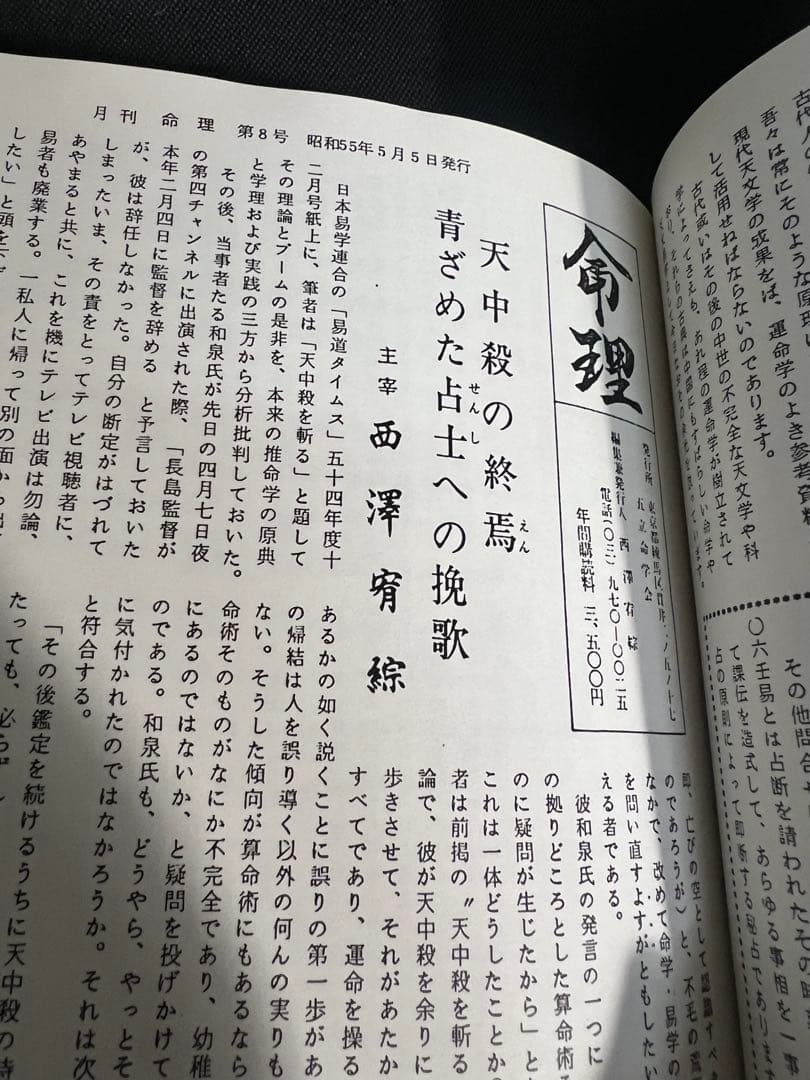 月刊命理 第8号 昭和55年5月5日発行
命理
発行所 東京都練馬区貫井二ノ五ノ十七
五立命学会
編集兼発行人 西澤宥綜
電話(〇三)九七〇―〇〇二五
年間購読料 三、五〇〇円
天中殺の終焉
えん
青ざめた占士への挽歌
せんし
主宰 西澤宥綜
日本易学連合の「易道タイムス」五十四年度十
二月号紙上に、筆者は「天中殺を斬る」と題して
その理論とブームの是非を、本来の推命学の原典
と学理および実践の三方から分析批判しておいた。
その後、当事者たる和泉氏が先日の四月七日夜
の第四チャンネルに出演された際、「長島監督が
本年二月四日に監督を辞める と予言しておいた
が、彼は辞任しなかった。自分の断定がはづれて
しまったいま、その責をとってテレビ視聴者に、
あやまると共に、これを機にテレビ出演は勿論、
易者も廃業する。一私人に帰って別の面から
したい」と頭を
あるかの如く説くことに誤りの第一歩があ
の帰結は人を誤り導く以外の何んの実りも
ない。そうした傾向が算命術にもあるなら
命術そのものがなにか不完全であり、幼稚
にあるのではないか、と疑問を投げかけて
のである。和泉氏も、どうやら、やっとそ
に気付かれたのではなかろうか。それは次
と符合する。
「その後鑑定を続けるうちに天中殺の
たっても、必らず
即、亡びの空として認識すべ
のであろうが)と、不毛の荒
なかで、改めて命学・易学の
を問い直すよすがともしたい
える者である。
彼和泉氏の発言の一つに
の拠りどころとした算命術
のに疑問が生じたから」と
これは一体どうしたことか。
者は前掲の〝天中殺を斬る
論で、彼が天中殺を余りに
歩きさせて、それがあたか
すべてであり、運命を操る
吾々は常にそのような原理
現代天文学の成果をば、運命学のよき参考資料
して活用せねばならないのであります。
古代或いはその後の中世の不完全な天文学や科
学によってさえも、あれ程の運命学が樹立されて
その他問合せ
〇六壬易とは占断を請われたその時
て課伝を造式して、あらゆる事相を一事
占の原則によって即断する秘占であります